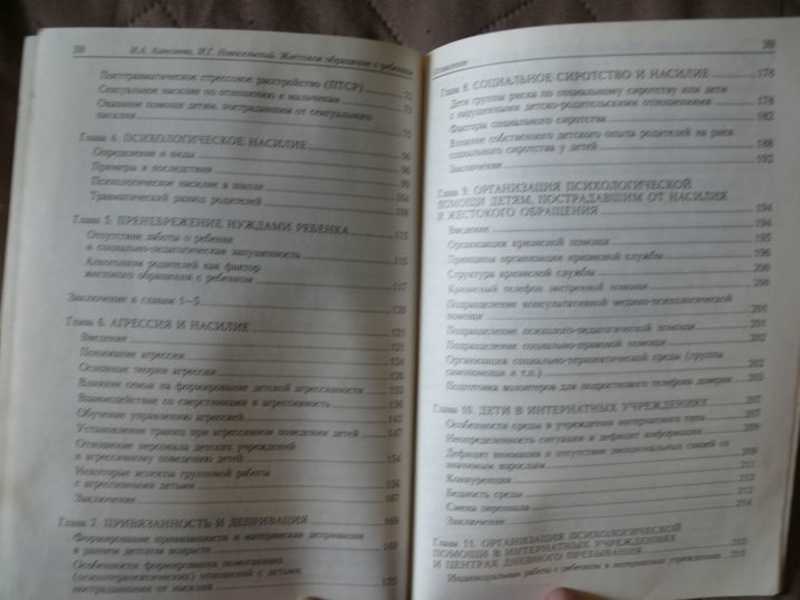 И.А. Алексеева, И.Г. Новосельский. Жестокое обращение с ребенком
Посттравматическое стрессовое расстройство (ПТСР)
Сексуальное насилие по отношению к мальчикам
Оказание помощи детям, пострадавшим от сексуального
насилия
Глава 4. ПСИХОЛОГИЧЕСКОЕ НАСИЛИЕ
Определение и виды
Примеры и последствия
Психологическое насилие в школе
Травматический развод родителей
Глава 5. ПРЕНЕБРЕЖЕНИЕ НУЖДАМИ РЕБЕНКА
Отсутствие заботы о ребенке
и социально-педагогическая запущенность
Алкоголизм родителей как фактор
жестокого обращения с ребенком
Заключение к главам 1—5
Глава 6. АГРЕССИЯ И НАСИЛИЕ 121
Введение 121
Понимание агрессии
Основные теории агрессии
Влияние семьи на формирование детской агрессивности
Взаимодействие со сверстниками и агрессивность
Обучение управлению агрессией
Установление границ при агрессивном поведении детей 147
Отношение персонала детских учреждений
к агрессивному поведению детей 154
Некоторые аспекты групповой работы
с агрессивными детьми
Заключение 167
Глава 7. ПРИВЯЗАННОСТЬ И ДЕПРИВАЦИЯ 169
Формирование привязанности и материнская депривация
в раннем детском возрасте 169
Особенности формирования помогающих
(психотерапевтических) отношений с детьми,
пострадавшими от насилия 175
Оглавление
Глава 8. СОЦИАЛЬНОЕ СИРОТСТВО И НАСИЛИЕ 178
Дети группы риска по социальному сиротству или дети
с нарушенными детско-родительскими отношениями 178
Факторы социального сиротства 182
Влияние собственного детского опыта родителей на риск
социального сиротства у детей 188
Заключение 192
Глава 9. ОРГАНИЗАЦИЯ ПСИХОЛОГИЧЕСКОЙ
ПОМОЩИ ДЕТЯМ, ПОСТРАДАВШИМ ОТ НАСИЛИЯ
И ЖЕСТОКОГО ОБРАЩЕНИЯ 194
Введение 194
Организация кризисной помощи 195
Принципы организации кризисной службы 196
Структура кризисной службы 200
Кризисный телефон экстренной помощи 200
Подразделение консультативной медико-психологической
помощи 201
Подразделение психолого-педагогической помощи 201
Подразделение социально-правовой помощи 202
Организация социально-терапевтической среды (группы
самопомощи и т.п.) 202
Подготовка волонтеров для подросткового телефона доверия
Глава 10. ДЕТИ В ИНТЕРНАТНЫХ УЧРЕЖДЕНИЯХ 207
Особенности среды в учреждении интернатного типа 207
Неопределенность ситуации и дефицит информации 209
Дефицит внимания и отсутствие эмоциональных связей со
значимым взрослым 209
Конкуренция 211
Бедность среды 212
Смена персонала 212
Заключение 214
Глава 11. ОРГАНИЗАЦИЯ ПСИХОЛОГИЧЕСКОЙ
ПОМОЩИ В ИНТЕРНАТНЫХ УЧРЕЖДЕНИЯХ
И ЦЕНТРАХ ДНЕВНОГО ПРЕБЫВАНИЯ
Индивидуальная работа с ребенком в интернатном учреждении